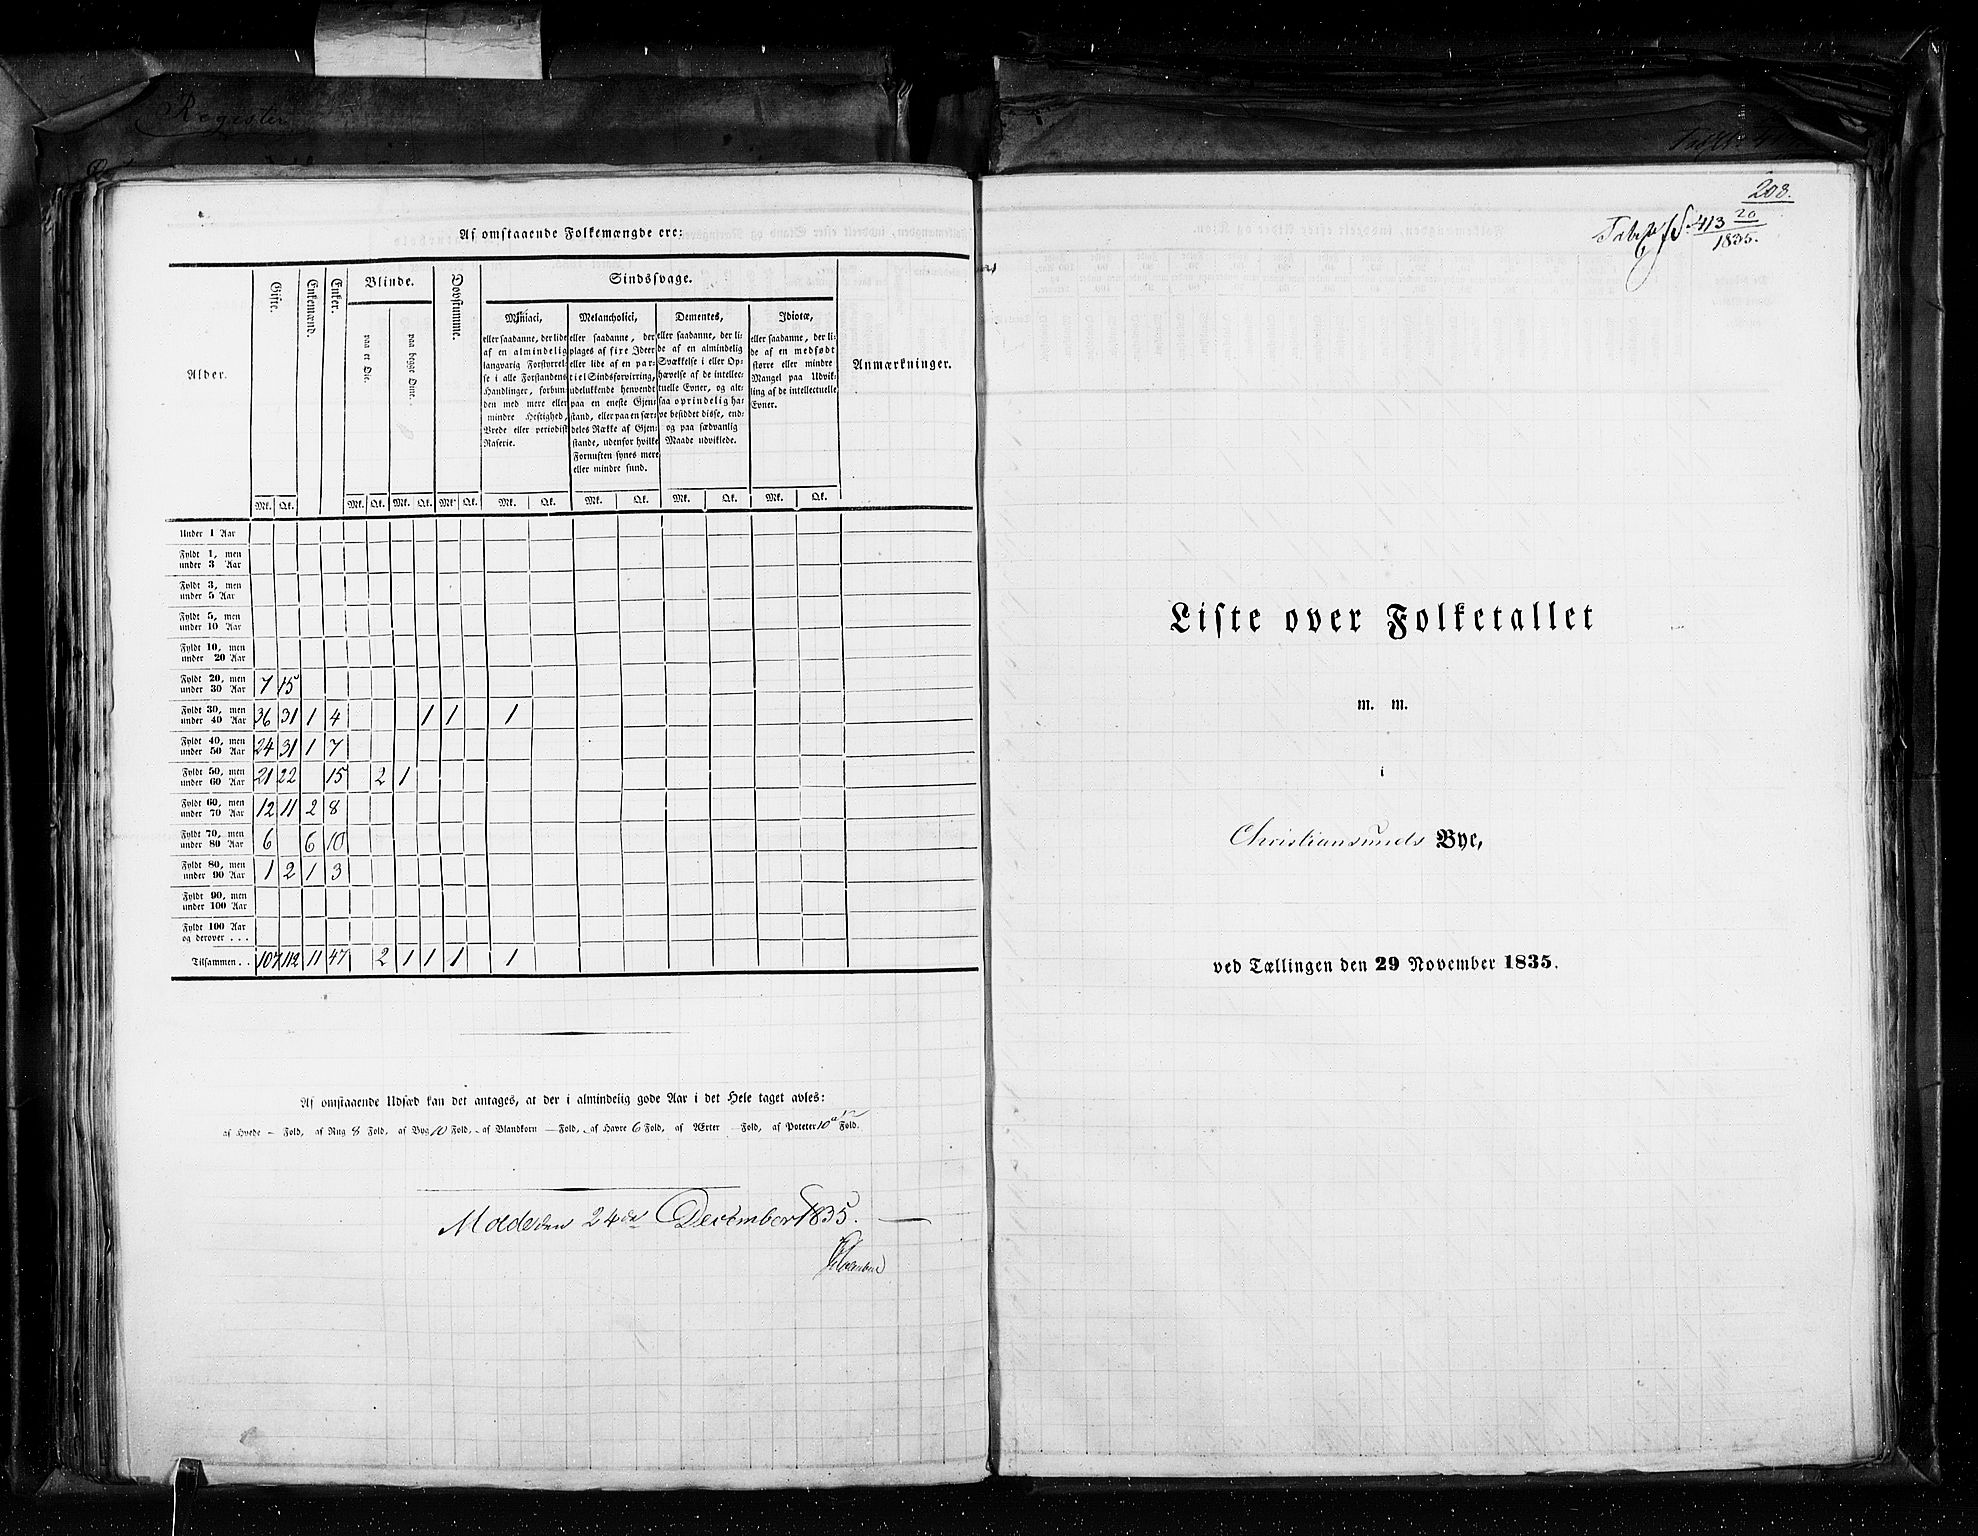 Register
Af omstaaende Folkemængde ere:
Alder.
Gifte.
Enkemænd.
Enker.
Blinde.
paa et Øie.
paa begge Øine.
Døvstumme.
Sindssvage.
Anmærkninger.
Maniaci,
eller saadanne, der lide
af en almindelig
langvarig Forstyrrel-
se i alle Forstandens
Handlinger, forbun-
den med mere eller
mindre Heftighed,
Vrede eller periodisk
Raserie.
Melancholici,
eller saadanne, der
plages af fixe Ideer
eller lide af en par-
tiel Sindsforvirring,
udelukkende henvendt
paa en eneste Gjen-
stand, eller paa en sær-
deles Række af Gjen-
stande, udenfor hvilke
Fornuften synes mere
eller mindre sund.
Dementes,
eller saadanne, der li-
de af en almindelig
Svækkelse i eller Op-
hævelse af de intellec-
tuelle Evner, og alt-
saa oprindelig ha-
ve besiddet disse, end-
og paa sædvanlig
Maade udviklede.
Idiotæ,
eller saadanne, der li-
de af en medfødt
større eller mindre
Mangel paa Udvik-
ling af de intellectuelle
Evner.
Mk. Qk. Mk. Qk. Mk. Qk. Mk. Qk. Mk. Qk. Mk. Qk. Mk. Qk. Mk. Qk.
Under 1 Aar
Fyldt 1, men
under 3 Aar
Fyldt 3, men
under 5 Aar
Fyldt 5, men
under 10 Aar
Fyldt 10, men
under 20 Aar
Fyldt 20, men
under 30 Aar 7 15
Fyldt 30, men
under 40 Aar 36 31 1 4 1 1 1
Fyldt 40, men
under 50 Aar 24 31 1 7
Fyldt 50, men
under 60 Aar 21 22 15 2 1
Fyldt 60, men
under 70 Aar 12 11 2 8
Fyldt 70, men
under 80 Aar 6 6 10
Fyldt 80, men
under 90 Aar 1 2 1 3
Fyldt 90, men
under 100 Aar
Fyldt 100 Aar
og derover . . .
Tilsammen . . 107 112 11 47 2 1 1 1 1
Af omstaaende Udsæd kan det antages, at der i almindelig gode Aar i det Hele taget avles:
af Hvede – Fold, af Rug 8 Fold, af Byg 10 Fold, af Blandkorn – Fold, af Havre 6 Fold, af Ærter – Fold, af Poteter 10 a 12 Fold.
Molde den 24de December 1835.
208.
413 20
1835.
Liste over Folketallet
m. m.
i
Christiansunds Bye,
ved Tællingen den 29 November 1835.